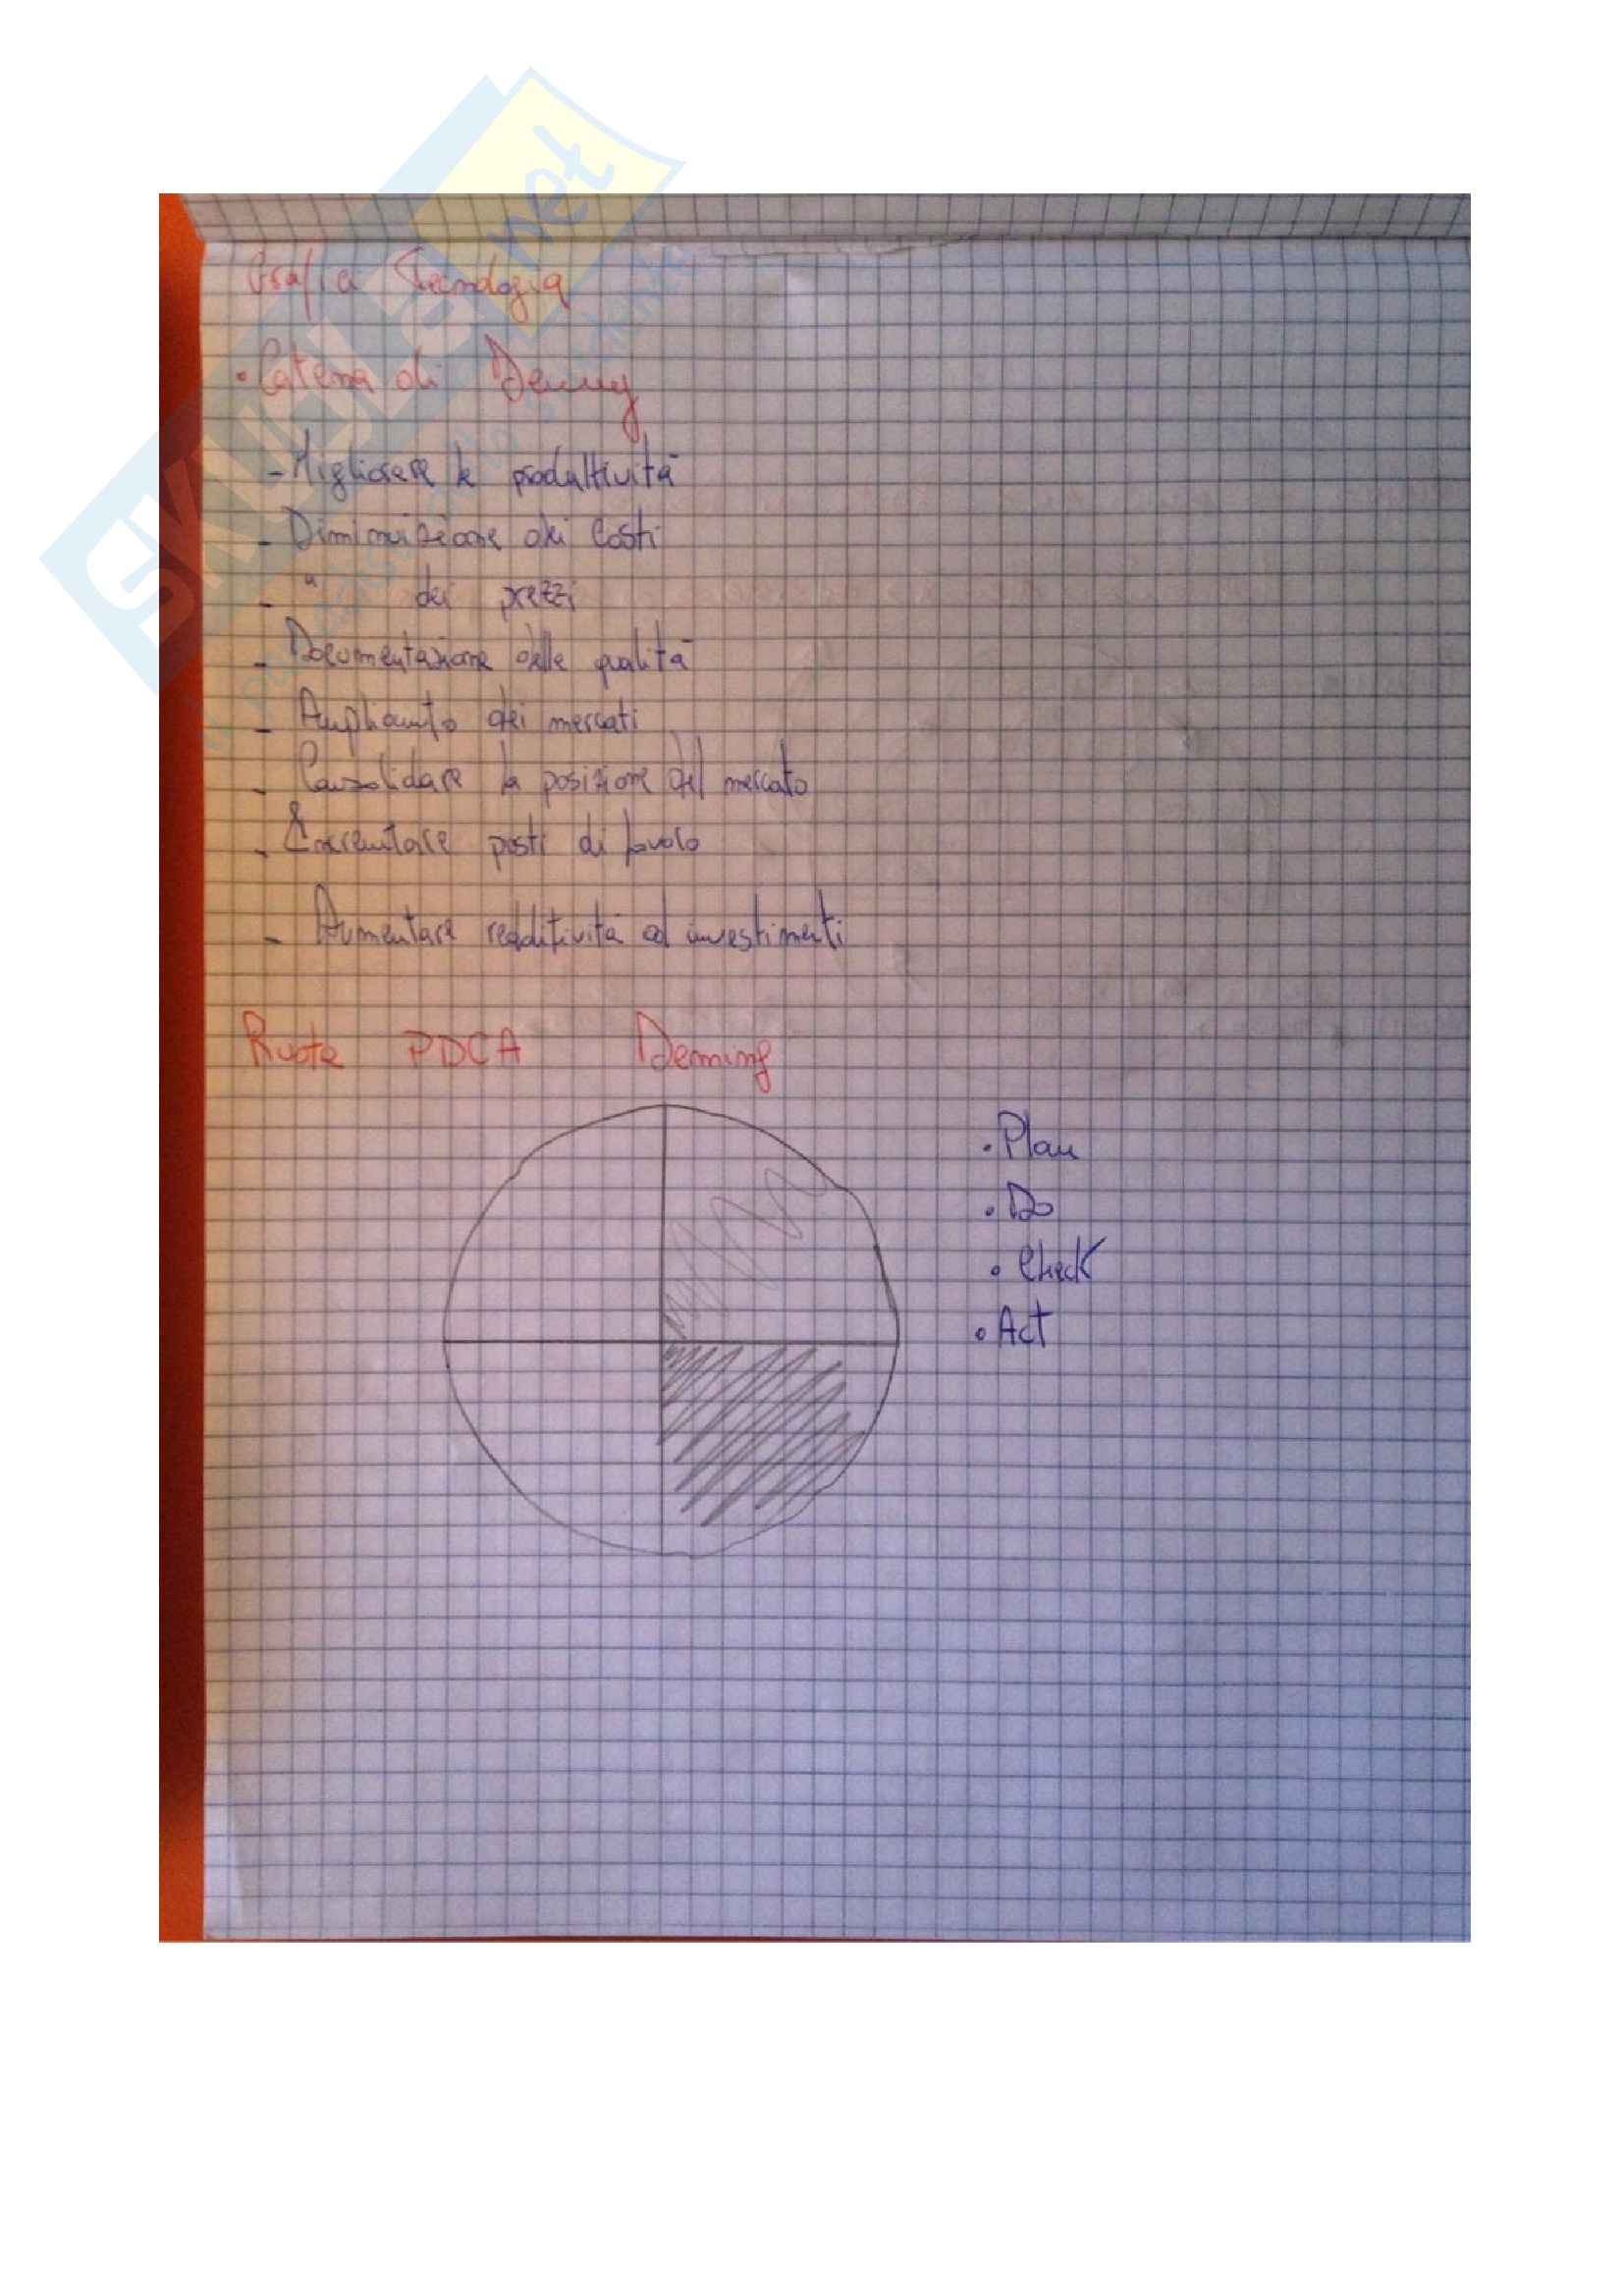 Grafici Tecnologia
• Catena di Deming
- Migliorare la produttività
- Diminuizione dei Costi
- " dei prezzi
- Documentazione delle qualità
- Ampliamento dei mercati
- Consolidare la posizione del mercato
- posti di lavoro
- Aumentare redditività ed investimenti
Ruota PDCA Deming
• Plan
• Do
• Check
• Act
SKUOLA.net